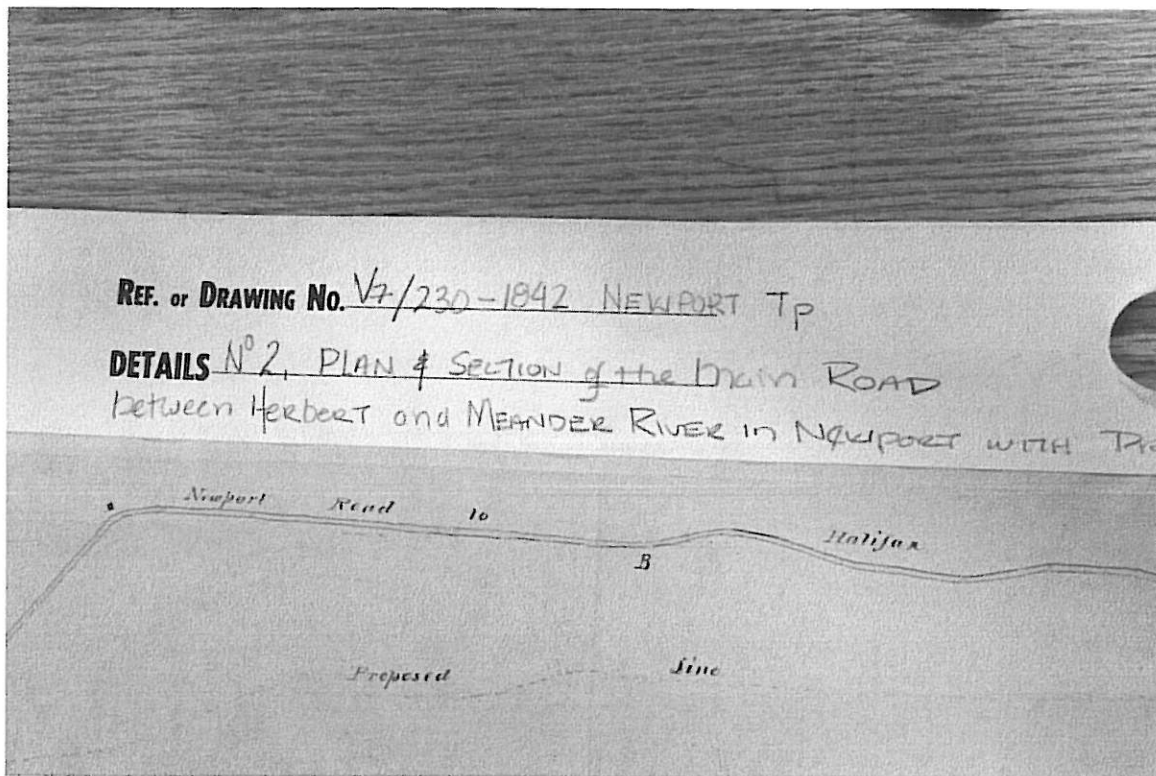 REF. or DRAWING No. V7/230-1842 NEWPORT Tp
DETAILS No 2, PLAN & SECTION of the main ROAD
between HERBERT and MEANDER RIVER in NEWPORT WITH
Newport Road to Halifax
B
Proposed Line